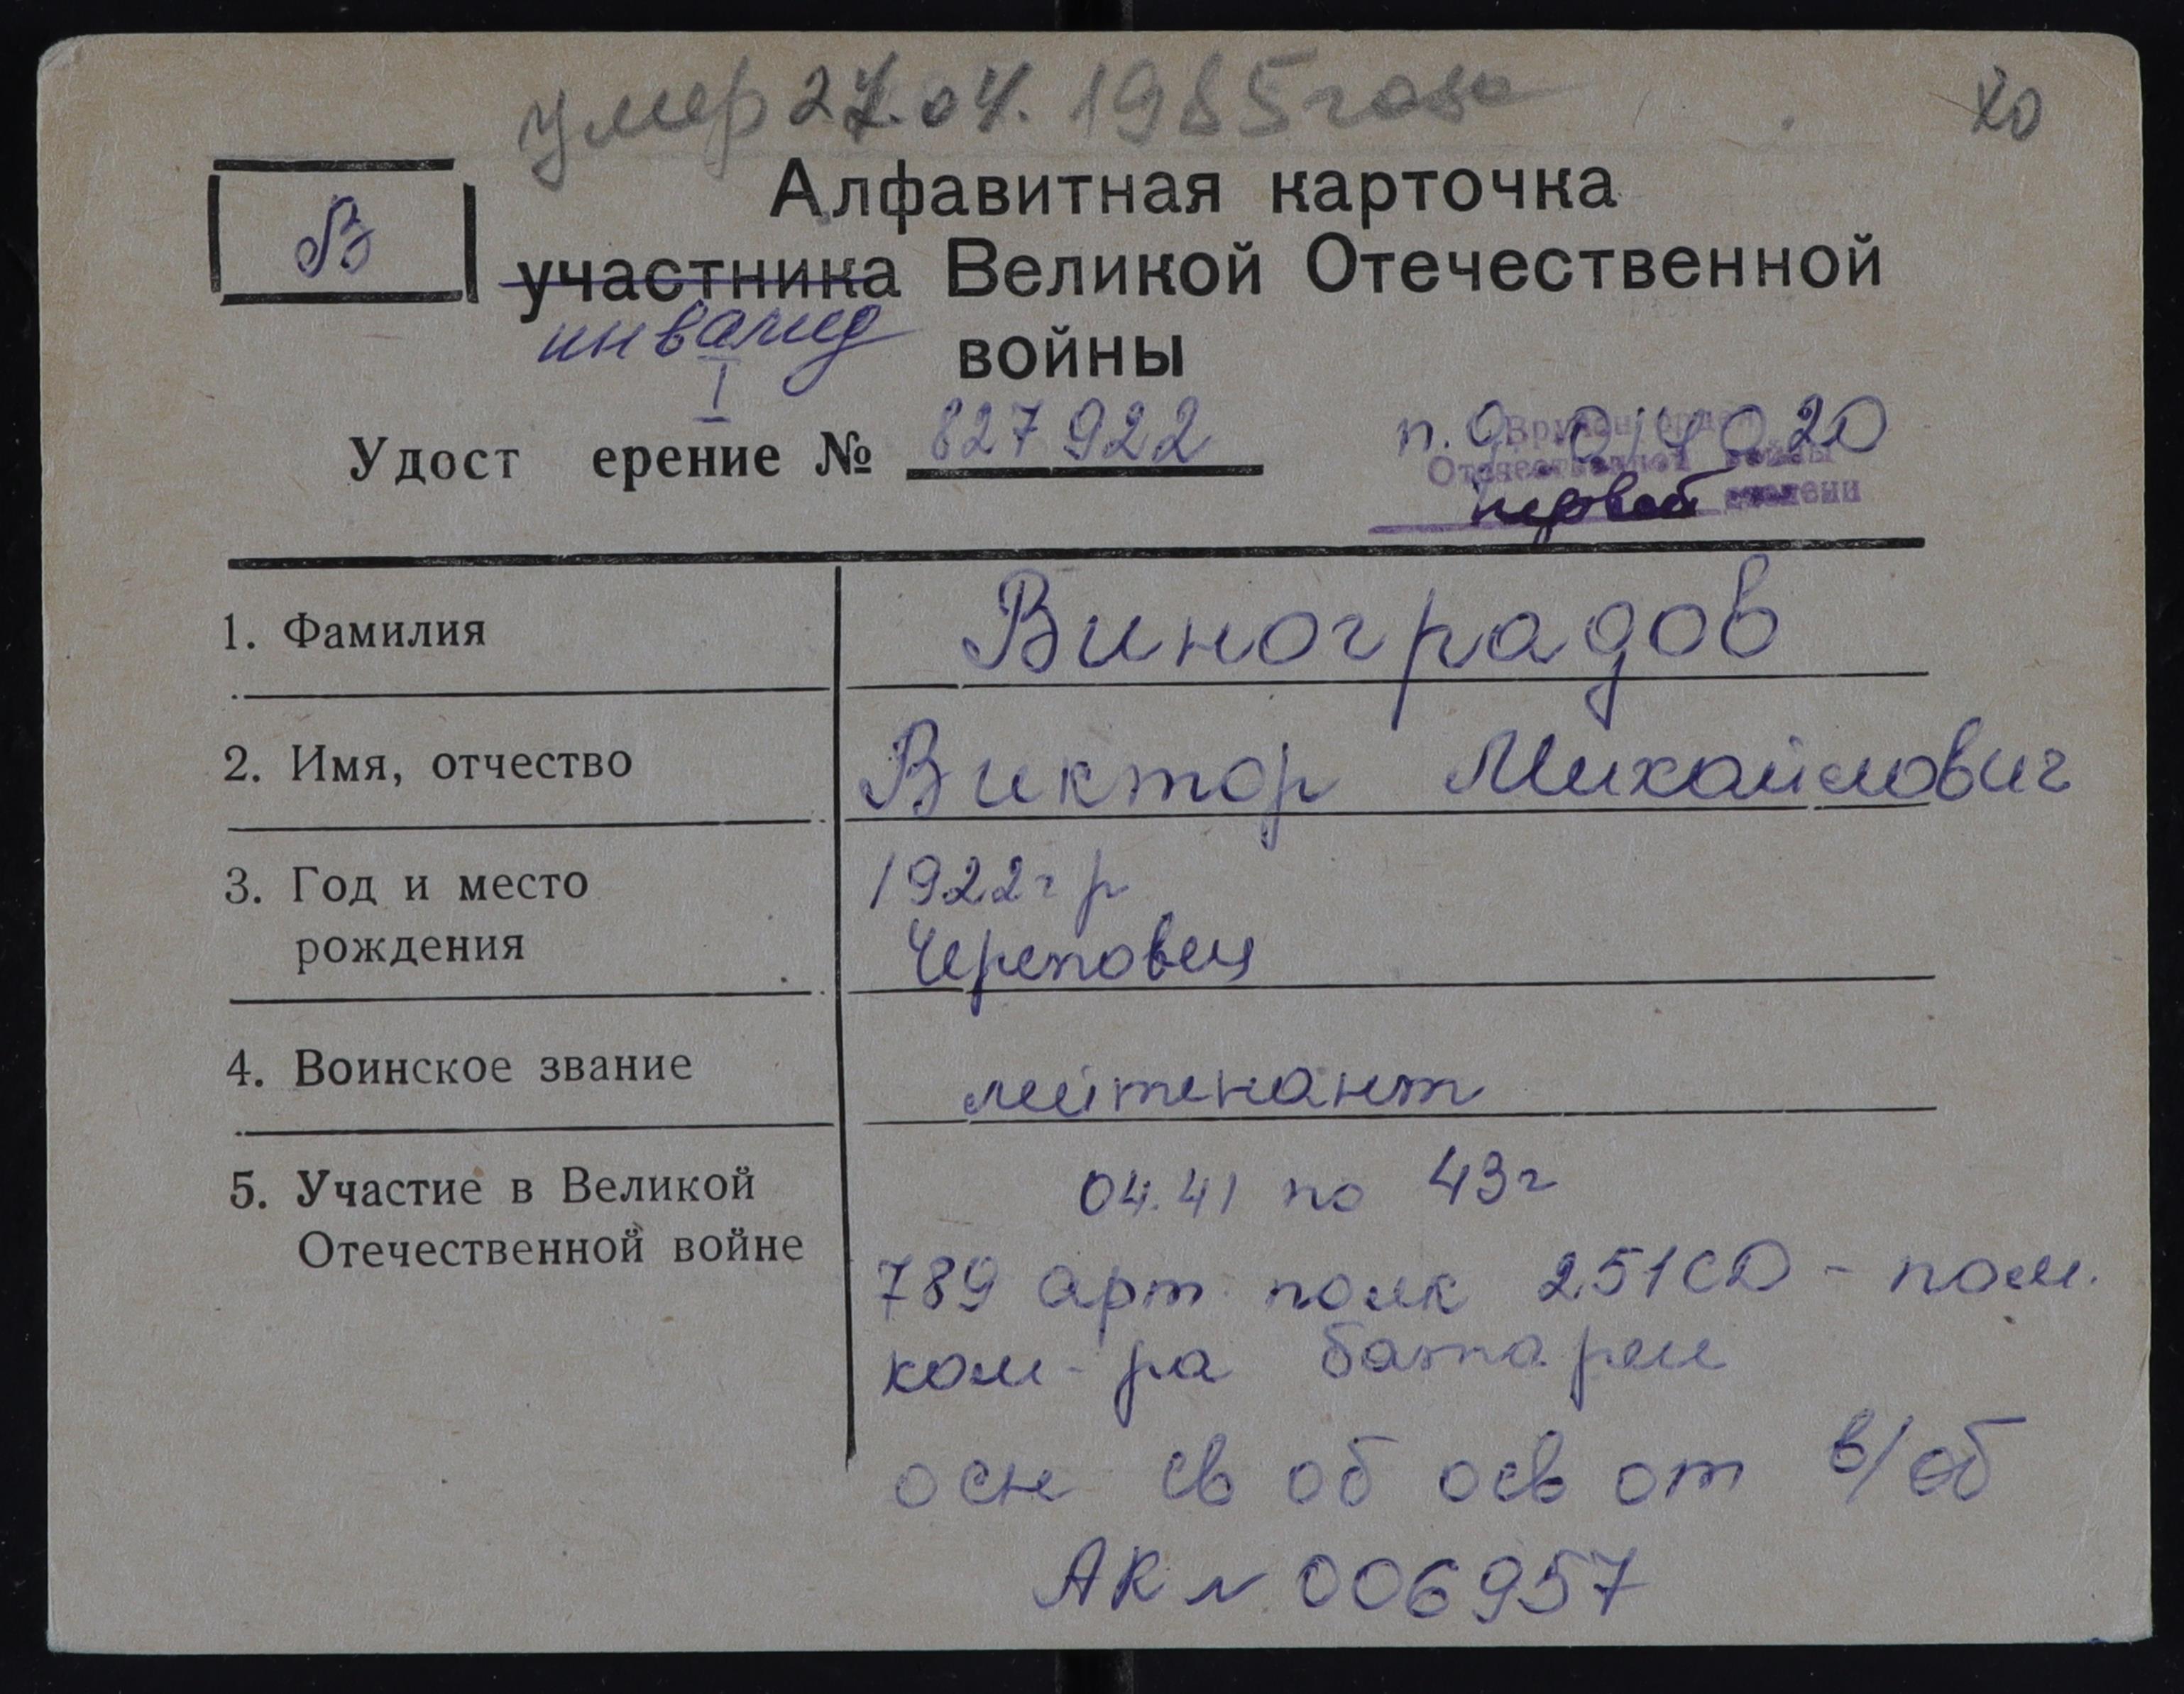 умер 27.04.1985 года
20
В
Алфавитная карточка
участника Великой Отечественной
инвалид
войны
I
Удост ерение № 827922
п.д. 017020
Вручен орден
Отечественной войны
первой степени
1. Фамилия
Виноградов
2. Имя, отчество
Виктор Михайлович
3. Год и место
рождения
1922 г р
Череповец
4. Воинское звание
лейтенант
5. Участие в Великой
Отечественной войне
04.41 по 43г
789 арт полк 251СД - пом.
ком-ра батареи
осн св об осв от в/об
АК № 006957